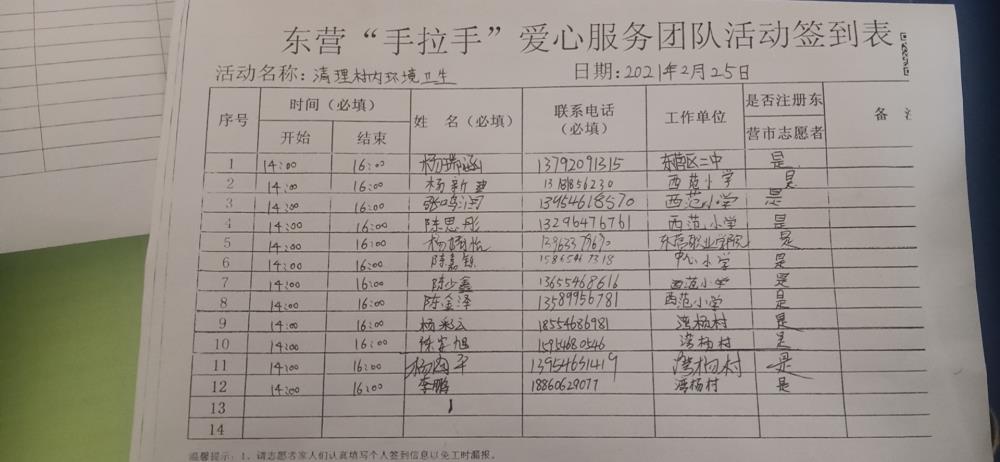 东营“手拉手”爱心服务团队活动签到表
活动名称：清理村内环境卫生 日期：2021年2月25日
序号 时间（必填） 姓 名（必填） 联系电话（必填） 工作单位 是否注册东营市志愿者 备
开始 结束
1 14:00 16:00 杨瑞涵 13792091315 东营区二中 是
2 14:00 16:00 杨新建 西范小学 是
3 14:00 16:00 13954618570 西范小学 是
4 14:00 16:00 陈思彤 13296476761 西范小学 是
5 14:00 16:00 东营职业学院 是
6 14:00 16:00 陈嘉 15865467318 中心小学 是
7 14:00 16:00 陈少鑫 13655468616 西范小学 是
8 14:00 16:00 陈金泽 13589956781 西范小学 是
9 14:00 16:00 杨彩云 18554686981 湾杨村 是
10 14:00 16:00 旭 15954680546 湾杨村 是
11 14:00 16:00 平 13954651419 湾杨村 是
12 14:00 16:00 李鹏 18860629077 湾杨村 是
13
14
温馨提示：1、请志愿者家人们认真填写个人签到信息以免工时漏报。